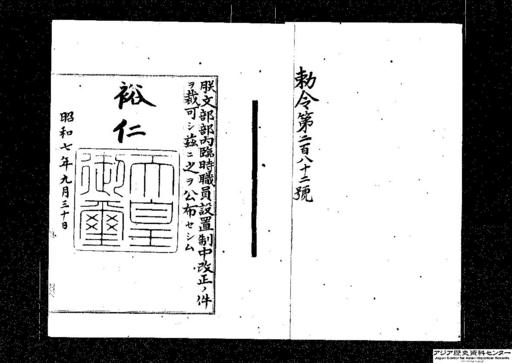 勅令第二百八十二號
朕文部部内臨時職員設置制中改正ノ件
ヲ裁可シ茲ニ之ヲ公布セシム
裕仁
天皇
御璽
昭和七年九月三十日
アジア歴史資料センター
Japan Center for Asian Historical Records